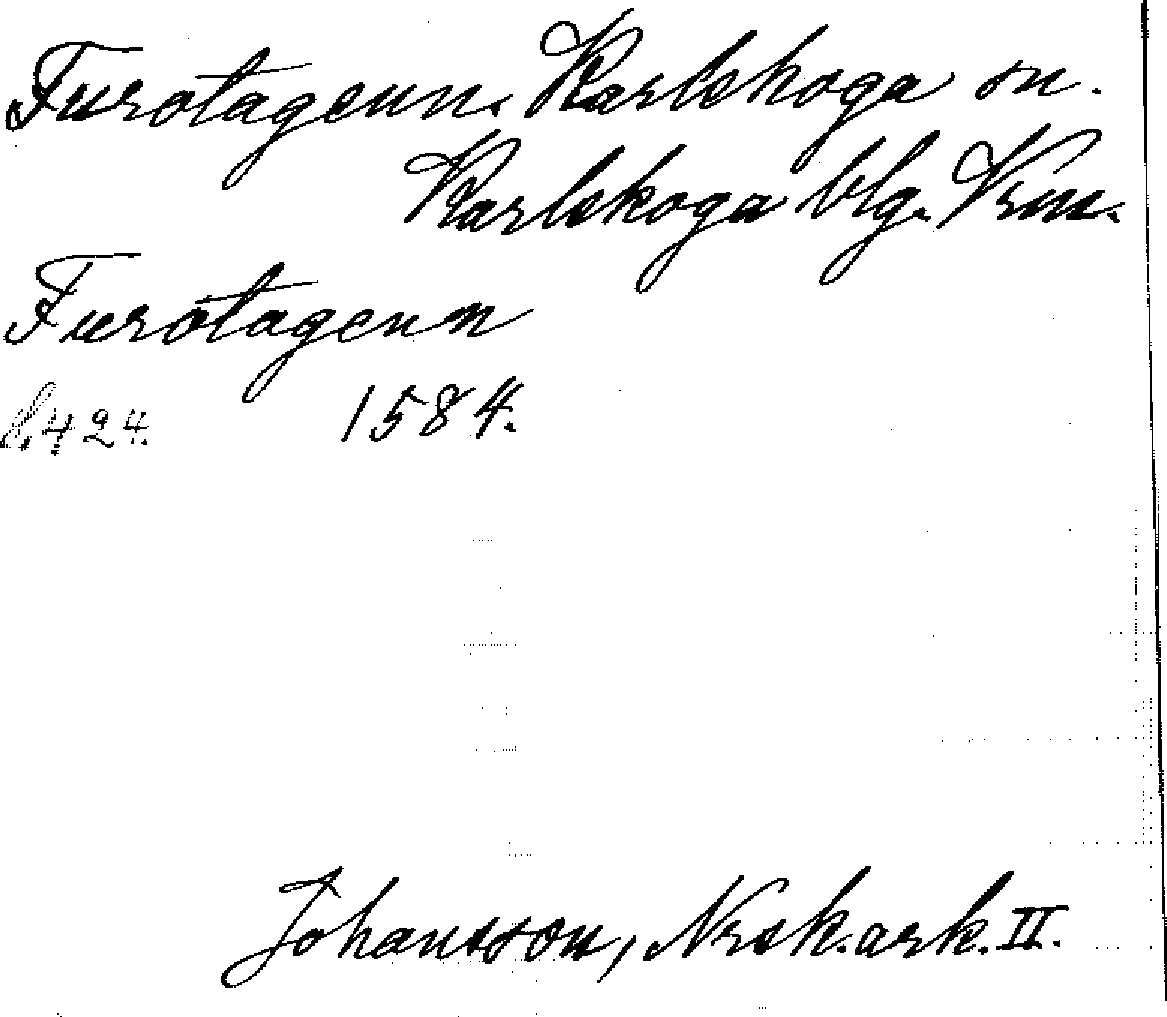 Furstagenn. Karlskoga sn.
Karlskoga blg. Vrm.
Furstagenn
S. 424. 1584.
Johansson, Nrsk. ark. II.